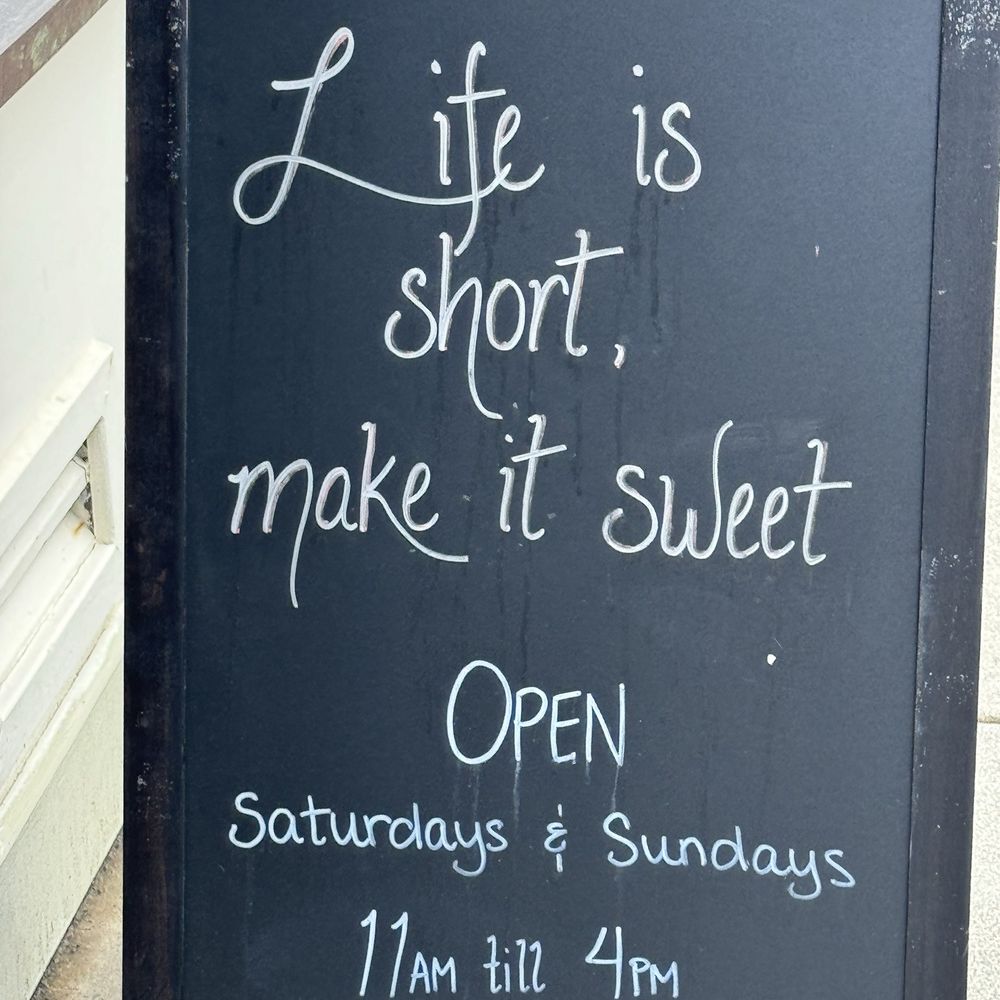 Life is
short,
make it sweet
OPEN
Saturdays & Sundays
11AM till 4PM